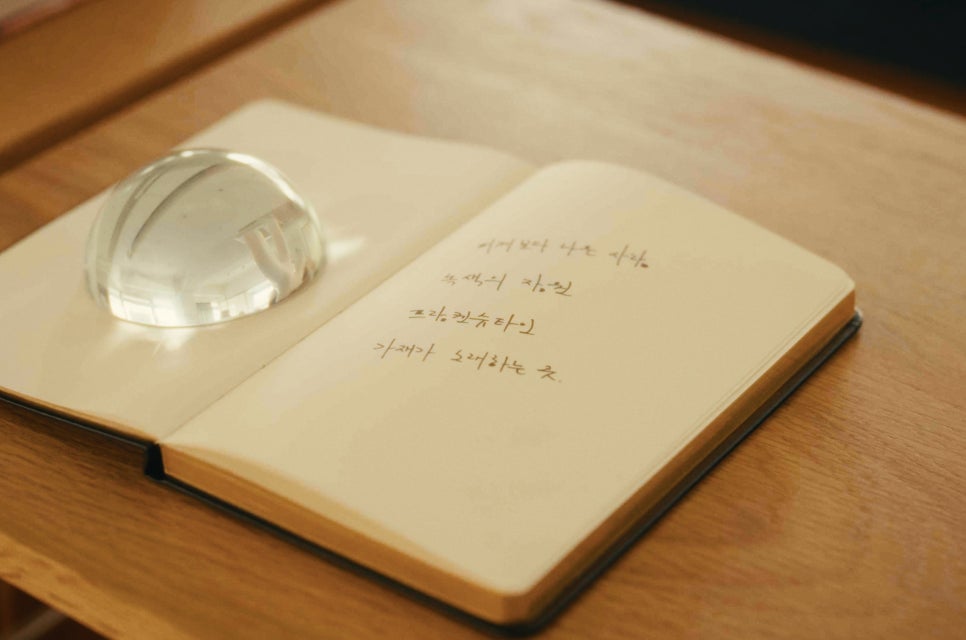 어제 보다 나은 사람
녹색의 장원
프랑켄슈타인
가재가 노래하는 곳.